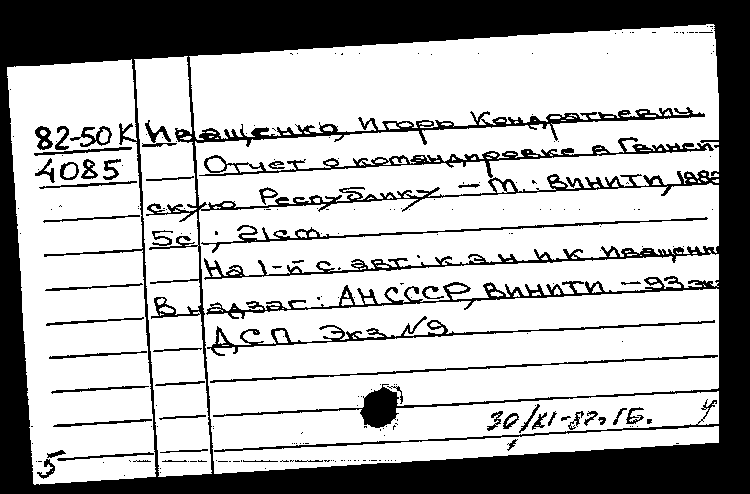 82-50К Иващенко, Игорь Кондратьевич.
4085 Отчет о командировке в Гвиней-
скую Республику – М.: ВИНИТИ, 1982
5с.; 21см.
На 1-й с. авт.: к.э.н. И.К. Иващенко
В надзаг.: АН СССР, ВИНИТИ. – 93 экз
ДСП. Экз. №9.
30/XI-82г. ГБ.
5